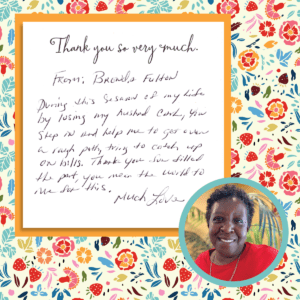 Thank you so very much.
From: Brenda Fulton
During this season of my life
by losing my husband Carl, you
step in and help me to get over
a rough patty trying to catch up
on bills. Thank you
the you mean the world to
me for this.
Much Love